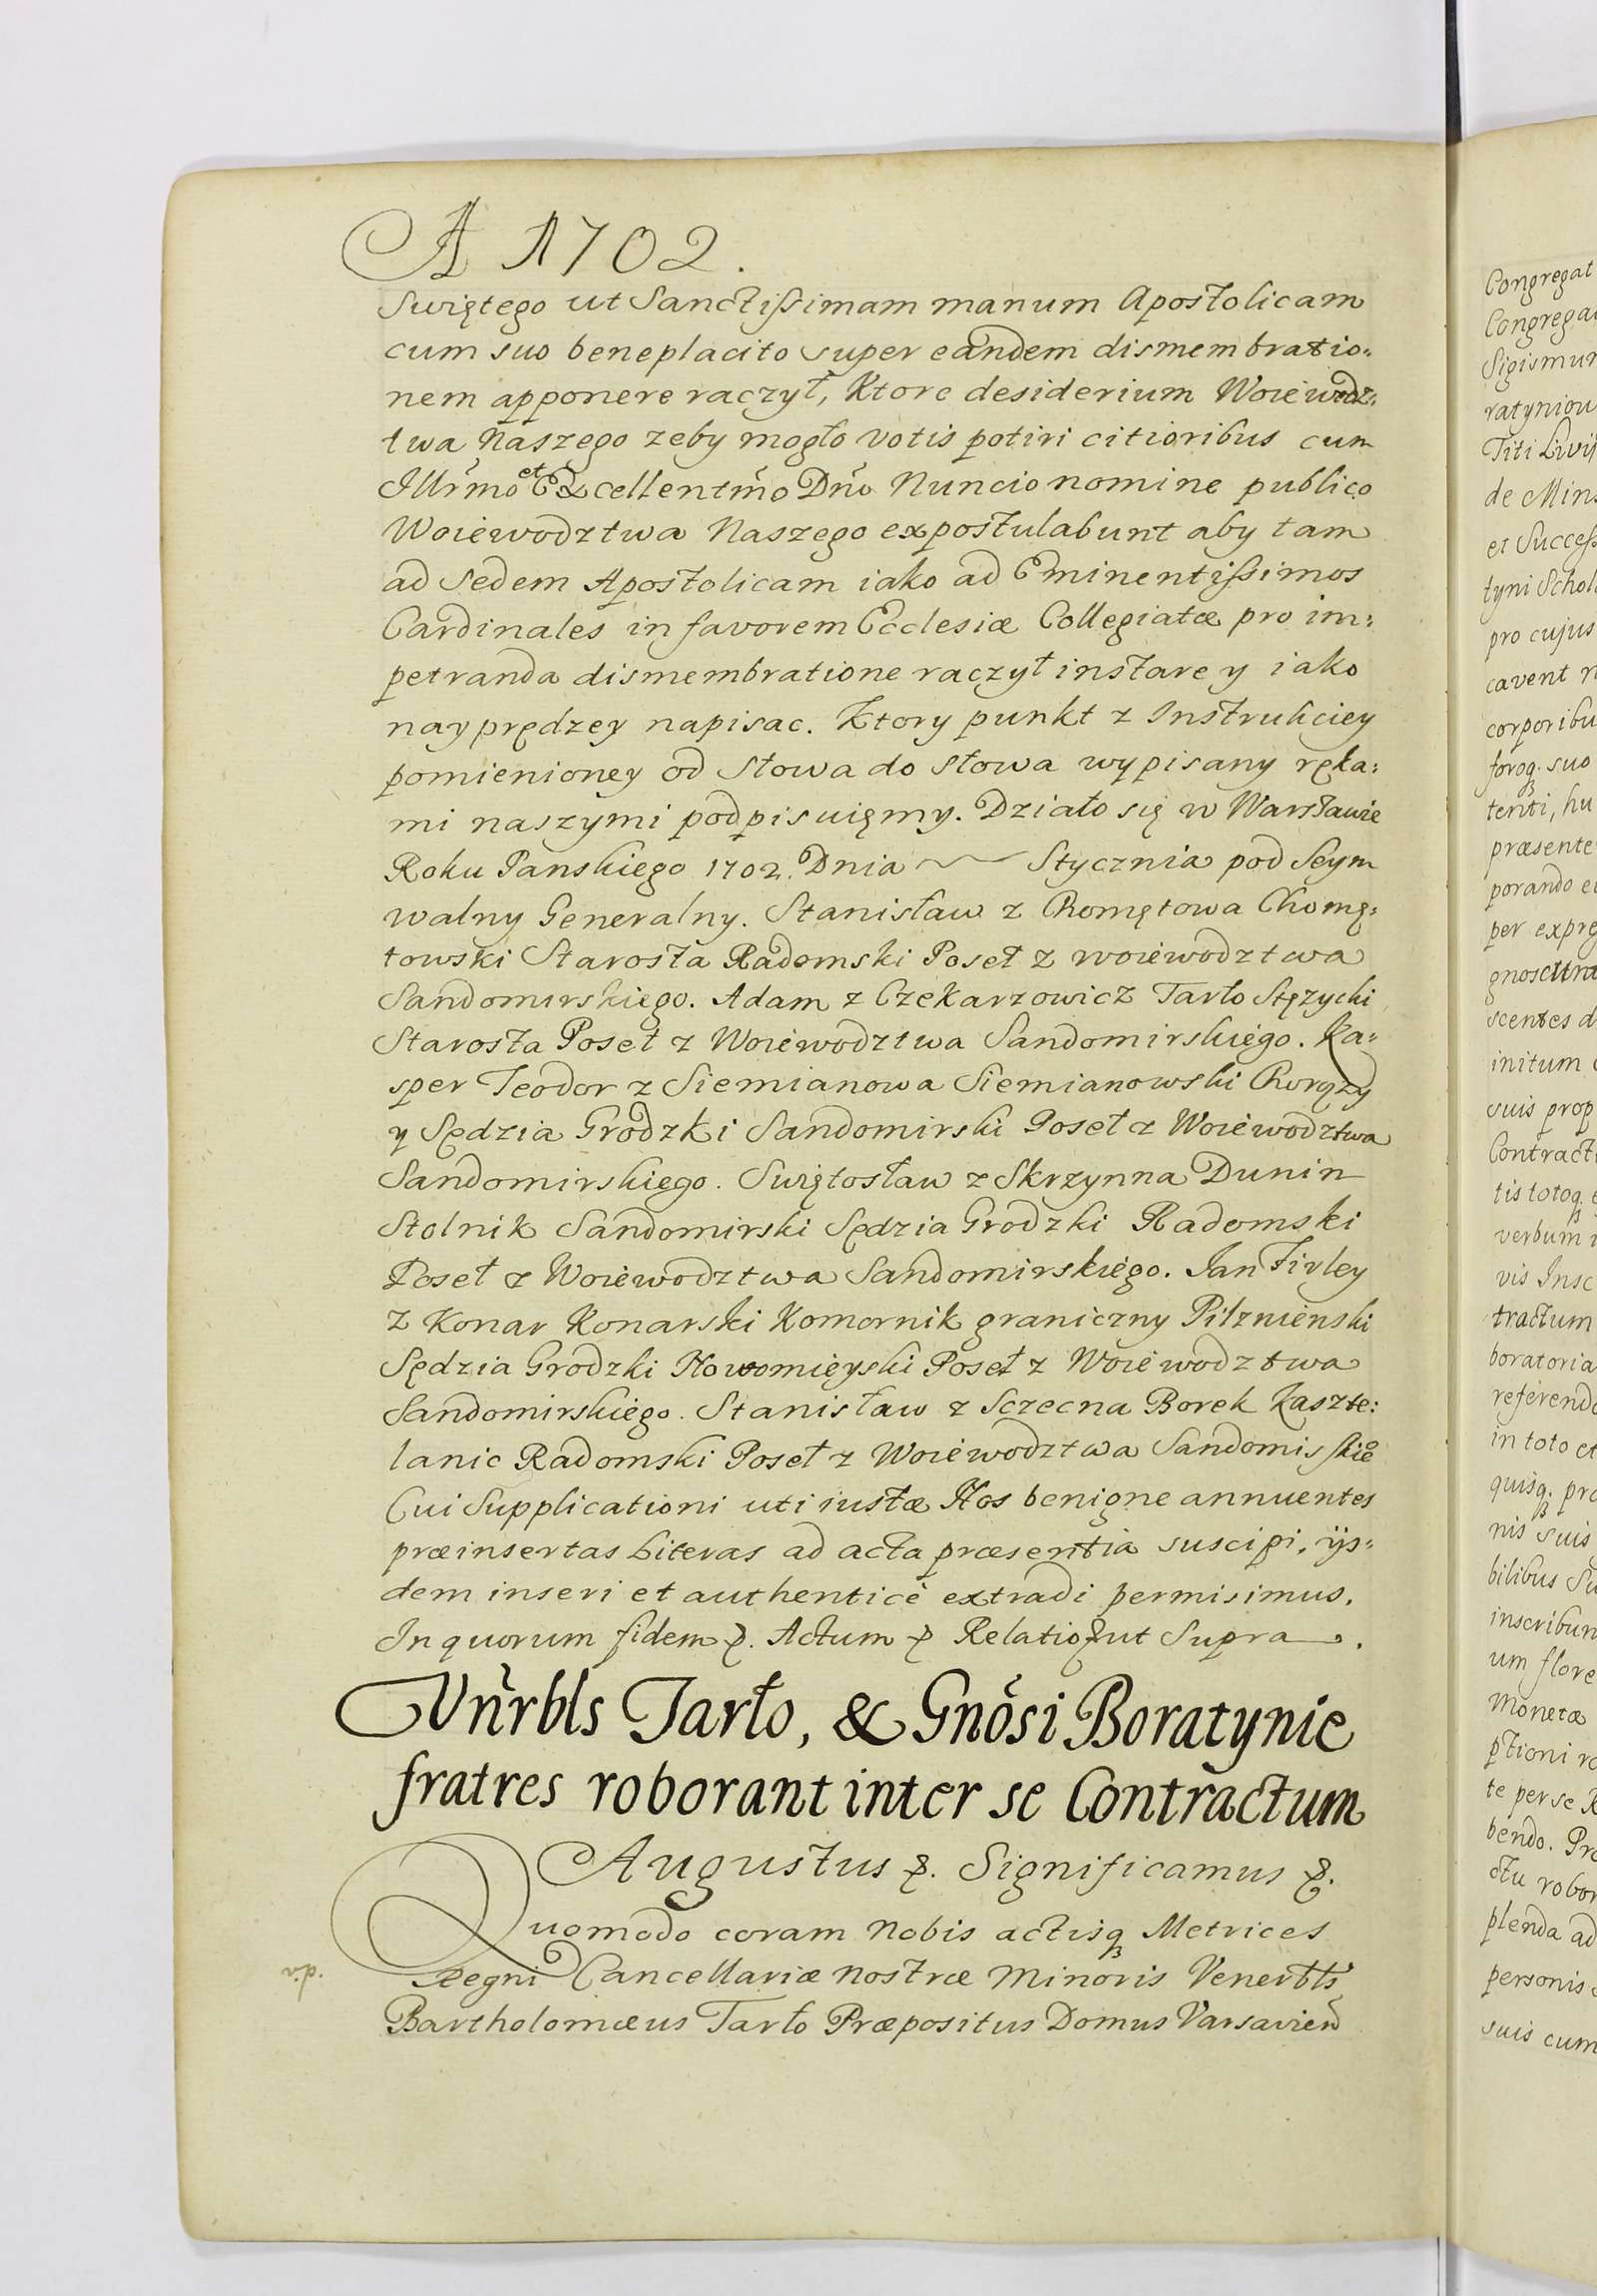 A 1702.
Swiętego ut Sanctissimam manum Apostolicam
cum suo beneplacito super eandem dismembratio=
nem apponere raczył, Ktore desiderium Woiewodz=
twa Naszego zeby mogło votis potiri citioribus cum
Illr̃mo et Excellentm̃o Dño Nuncio nomine publico
Woiewodztwa Naszego expostulabunt aby tam
ad Sedem Apostolicam iako ad Eminentissimos
Cardinales in favorem Ecclesiæ Collegiatæ pro im=
petranda dismembratione raczył instare y iako
nayprędzey napisac. Ktory punkt z Instrukciey
pomienioney od słowa do słowa wypisany ręka=
mi naszymi podpisuięmy. Działo się w Warsławie
Roku Panskiego 1702. Dnia ~ Stycznia pod Seym
walny Generalny. Stanisław z Chomętowa Chomę=
towski Starosta Radomski Poseł z woiewodztwa
Sandomirskiego. Adam z Czekarzowicz Tarło Stęzycki
Starosta Poseł z Woiewodztwa Sandomirskiego. Ka=
sper Teodor z Siemianowa Siemianowski Chorązy
y Sędzia Grodzki Sandomirski Poseł z Woiewodztwa
Sandomirskiego. Swiętosław z Skrzynna Dunin
Stolnik Sandomirski Sędzia Grodzki Radomski
Poseł z Woiewodztwa Sandomirskiego. Jan Firley
z Konar Konarski Komornik graniczny Pilznienski
Sędzia Grodzki Nowomieyski Poseł z Woiewodztwa
Sandomirskiego. Stanisław z Sczecna Borek Kaszte=
lanic Radomski Poseł z Woiewodztwa Sandomisskie
Cui Supplicationi uti iustæ Nos benigne annuentes
præinsertas Literas ad acta præsentia suscipi, ijs=
dem inseri et authenticè extradi permisimus.
In quorum fidem &. Actum & Relatio & ut Supra.
Vñrbls Tarło, & Gnõsi Boratynie
fratres roborant inter se Contractum
Augustus &. Significamus &.
Quomodo coram Nobis actisq Metrices
Regni Cancellariæ nostræ Minoris Venerbls
Bartholomæus Tarło Præpositus Domus Varsavien
Congregat
Congrega
Sigismun
ratyniow
Titi Livij
de Mins
et Success
tyni Schol
pro cujus
cavent n
corporibu
foroq. suo
tenti, hu
præsente
porando e
per expre
gnoscunt
scentes d
initum
suis prop
Contract
tis totoq
verbum i
vis Insc
tractum
boratoria
referend
in toto et
quisq. pro
nis suis
bilibus Su
inscribun
um flore
Monetæ
ptioni ro
te per se R
bendo. Pro
ctu robor
plenda ad
personis
suis cum